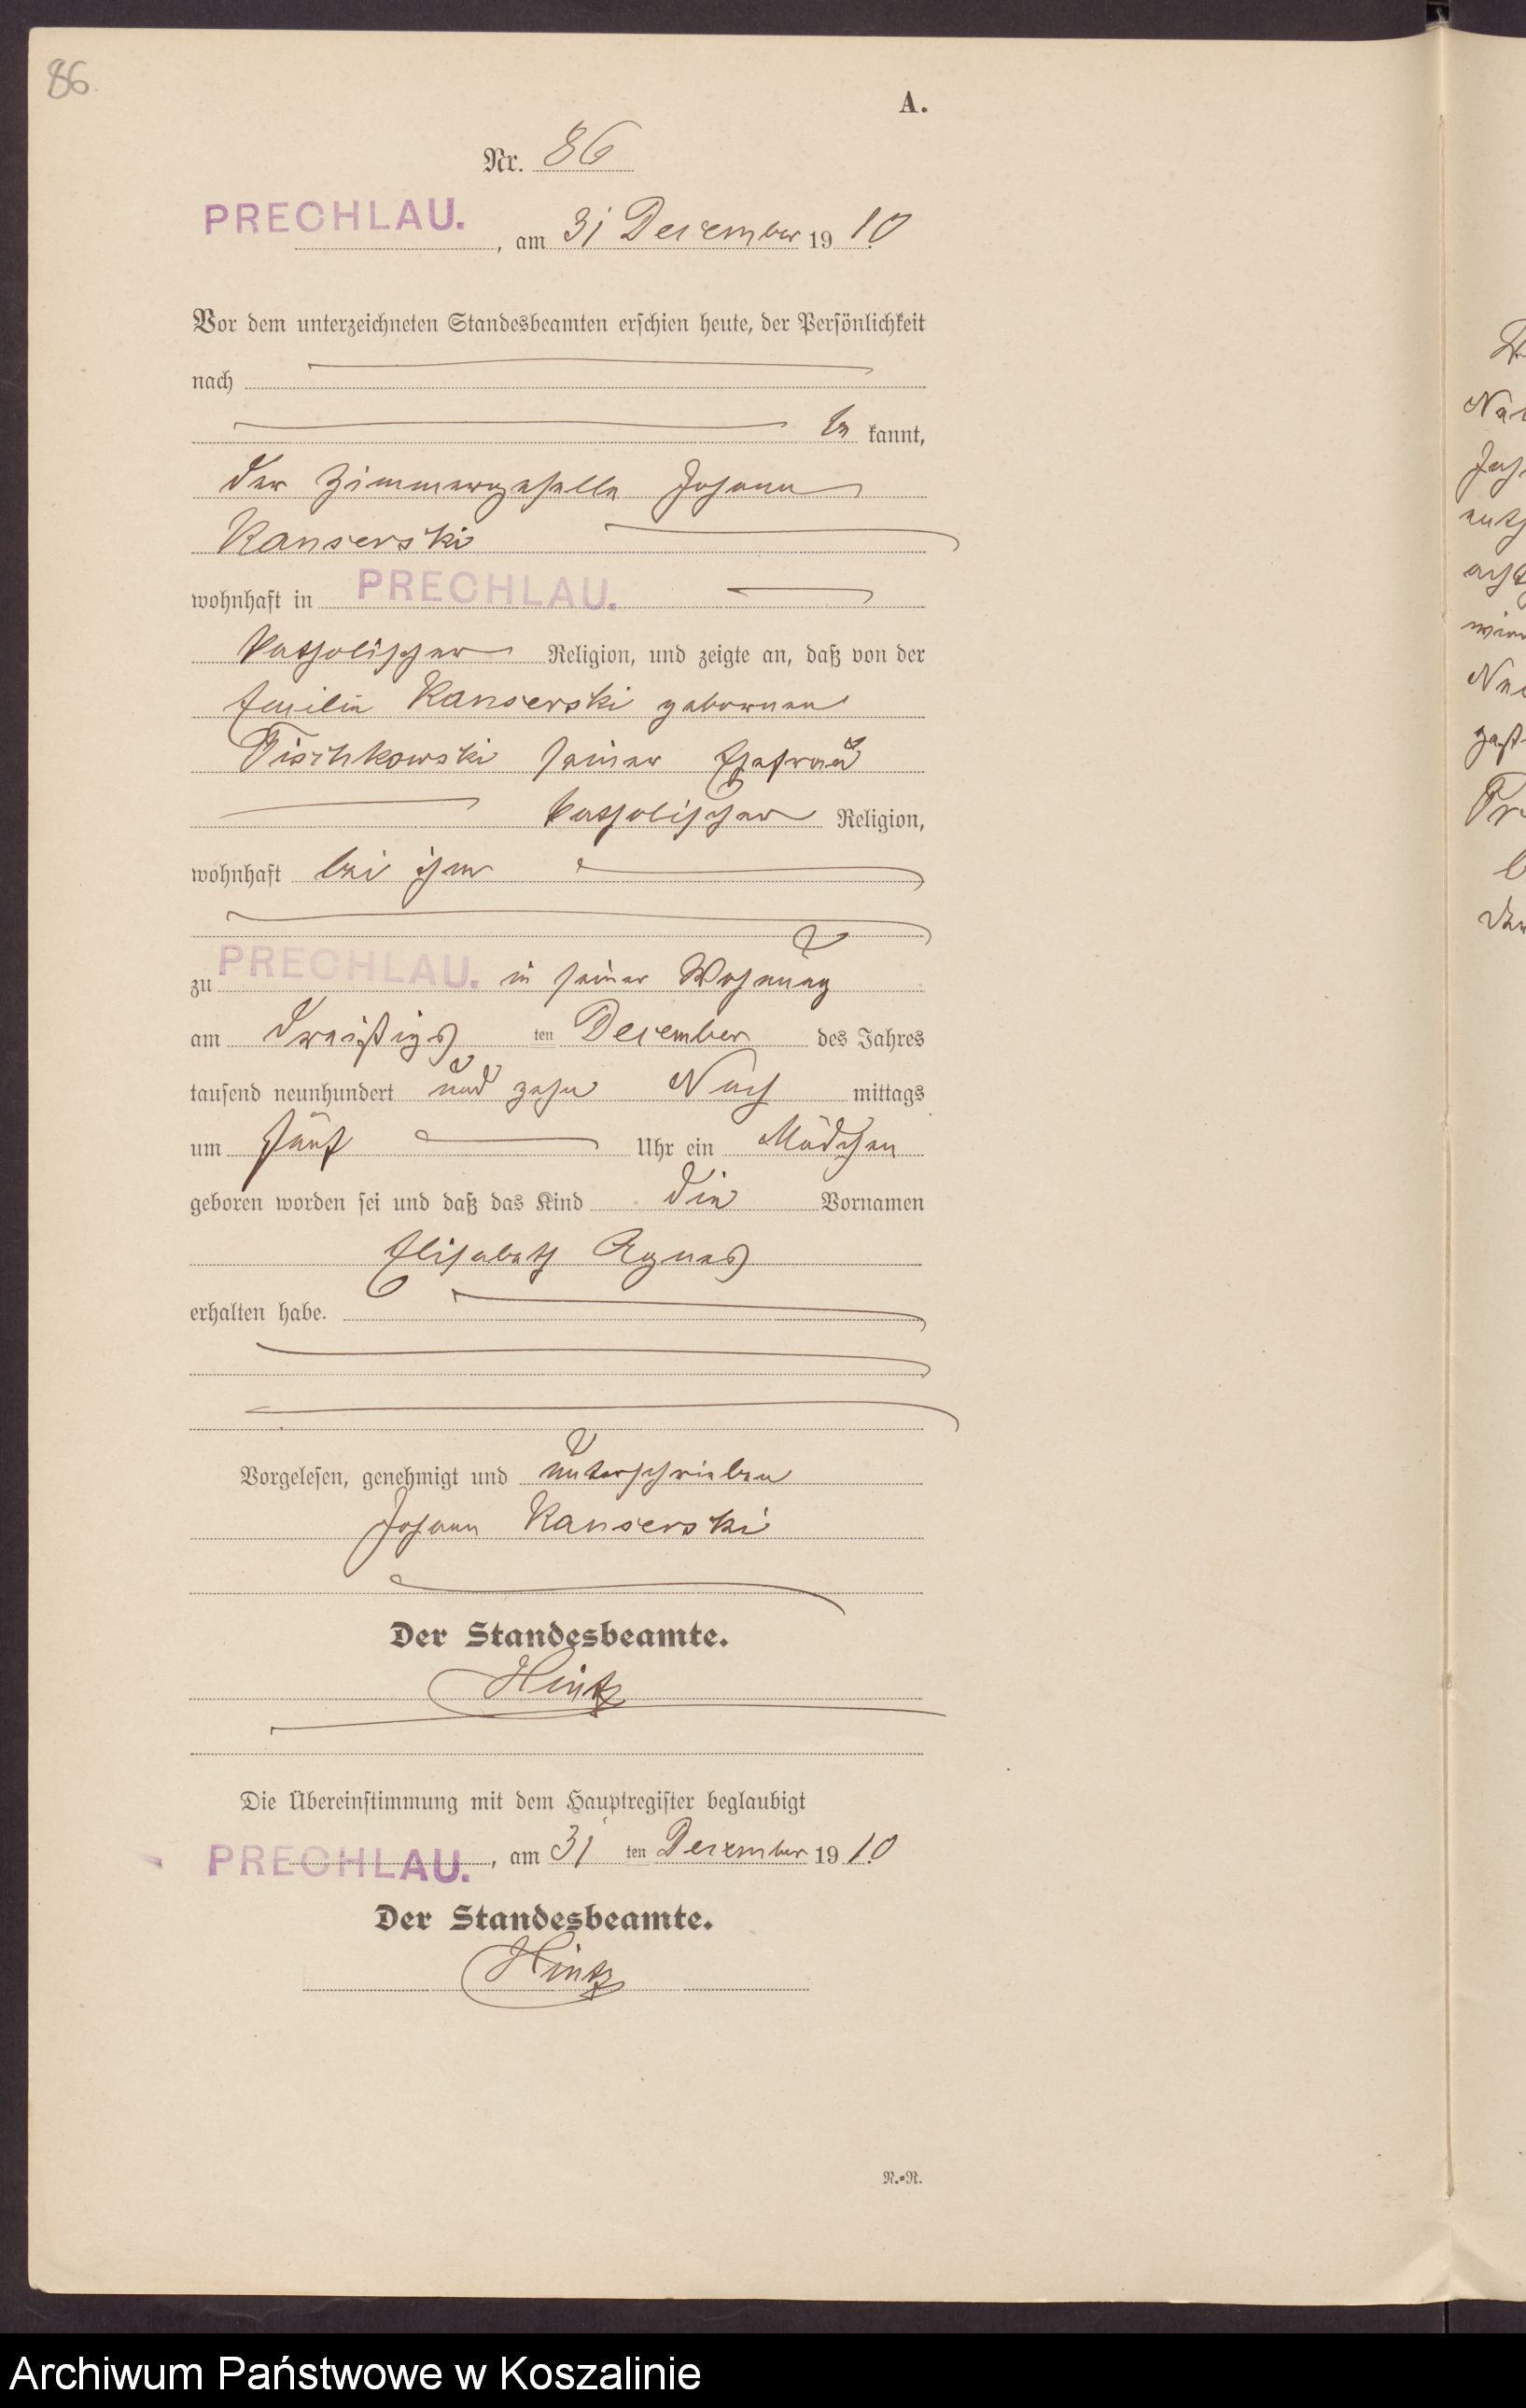 86
A.
Nr. 86
PRECHLAU. , am 31 Dezember 1910
Vor dem unterzeichneten Standesbeamten erschien heute, der Persönlichkeit
nach
be kannt,
der Zimmergeselle Johann
Kanserski
wohnhaft in PRECHLAU.
katholischer Religion, und zeigte an, daß von der
Emilie Kanserski geborenen
Tischkowski seiner Ehefrau
katholischer Religion,
wohnhaft bei ihm
zu PRECHLAU. in seiner Wohnung
am dreißigs ten Dezember des Jahres
tausend neunhundert und zehn Nach mittags
um fünf Uhr ein Mädchen
geboren worden sei und daß das Kind die Vornamen
Elisabeth Agnes
erhalten habe.
Vorgelesen, genehmigt und unterschrieben
Johann Kanserski
Der Standesbeamte.
Hintz
Die Übereinstimmung mit dem Hauptregister beglaubigt
PRECHLAU. , am 31 ten Dezember 1910
Der Standesbeamte.
Hintz
N.=R.
Archiwum Państwowe w Koszalinie